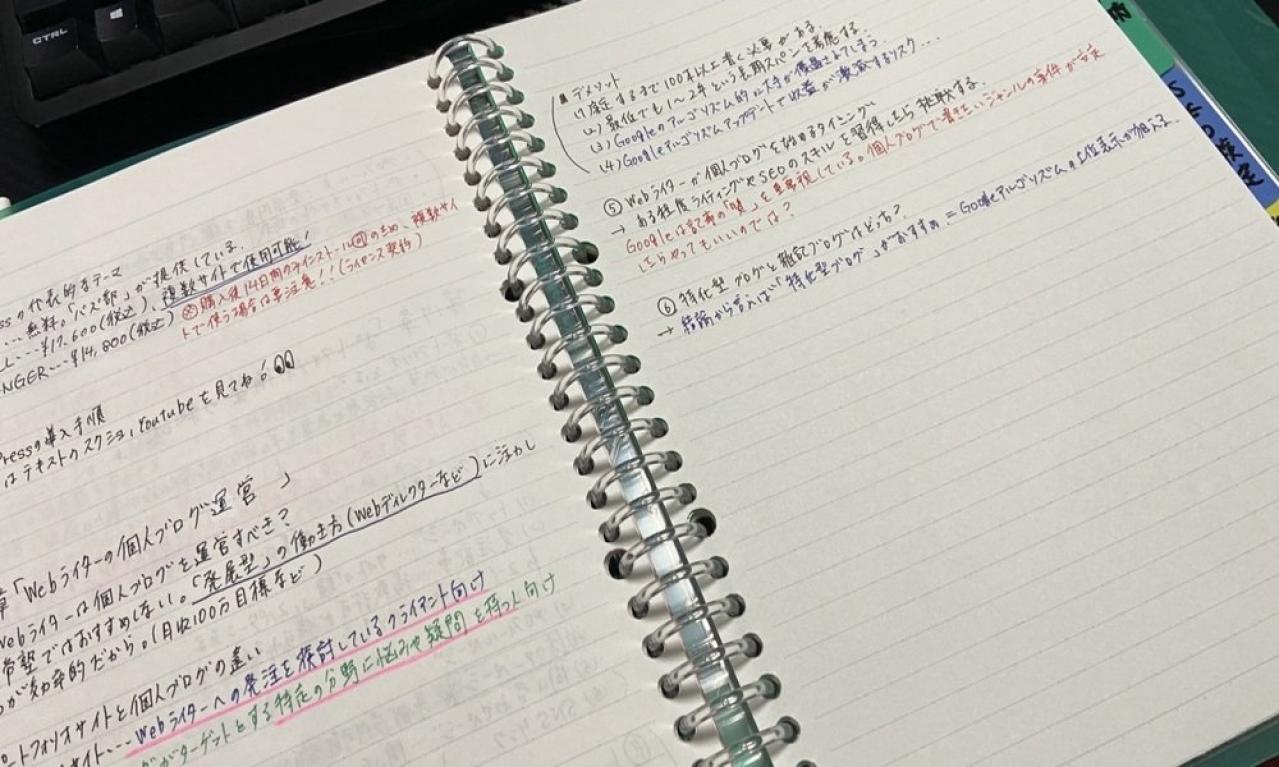 CTRL
ssの代表的なテーマ
…無料。「バズ部」が提供している。
L…¥17,600(税込)、複数サイトで使用可能!
NGER…¥14,800(税込)
※購入後14日間のアンインストール可のため、複数サイ
トで使う場合は要注意!!(ライセンス契約)
Pressの導入手順
はテキストのスクショ、Youtubeを見てね!
章「Webライターの個人ブログ運営」
Webライターは個人ブログを運営すべき?
希望ではおすすめしない。「発展型」の働き方(Webディレクターなど)に注力し
が効率的だから。(月収100万目標など)
ートフォリオサイトと個人ブログの違い
サイト…Webライターへの発注を検討しているクライアント向け
グがターゲットとする特定の分野に悩みや疑問を持つ人向け
■デメリット
(1)安定するまで100本以上書く必要がある。
(2)最低でも1〜2年という長期スパンを考慮する。
(3)Googleのアルゴリズム的に大手が優遇されてしまう。
(4)Googleアルゴリズムアップデートで収益が激減するリスク…
⑤Webライターが個人ブログを始めるタイミング
→ある程度ライティングやSEOのスキルを習得したら挑戦する。
Googleは記事の「質」を重要視している。個人ブログで書きたいジャンルの案件が安定
したらやってもいいのでは?
⑥特化型ブログと雑記ブログはどっち?
→結論から言えば「特化型ブログ」がおすすめ=Googleアルゴリズムの上位表示が狙える。
SEO検定